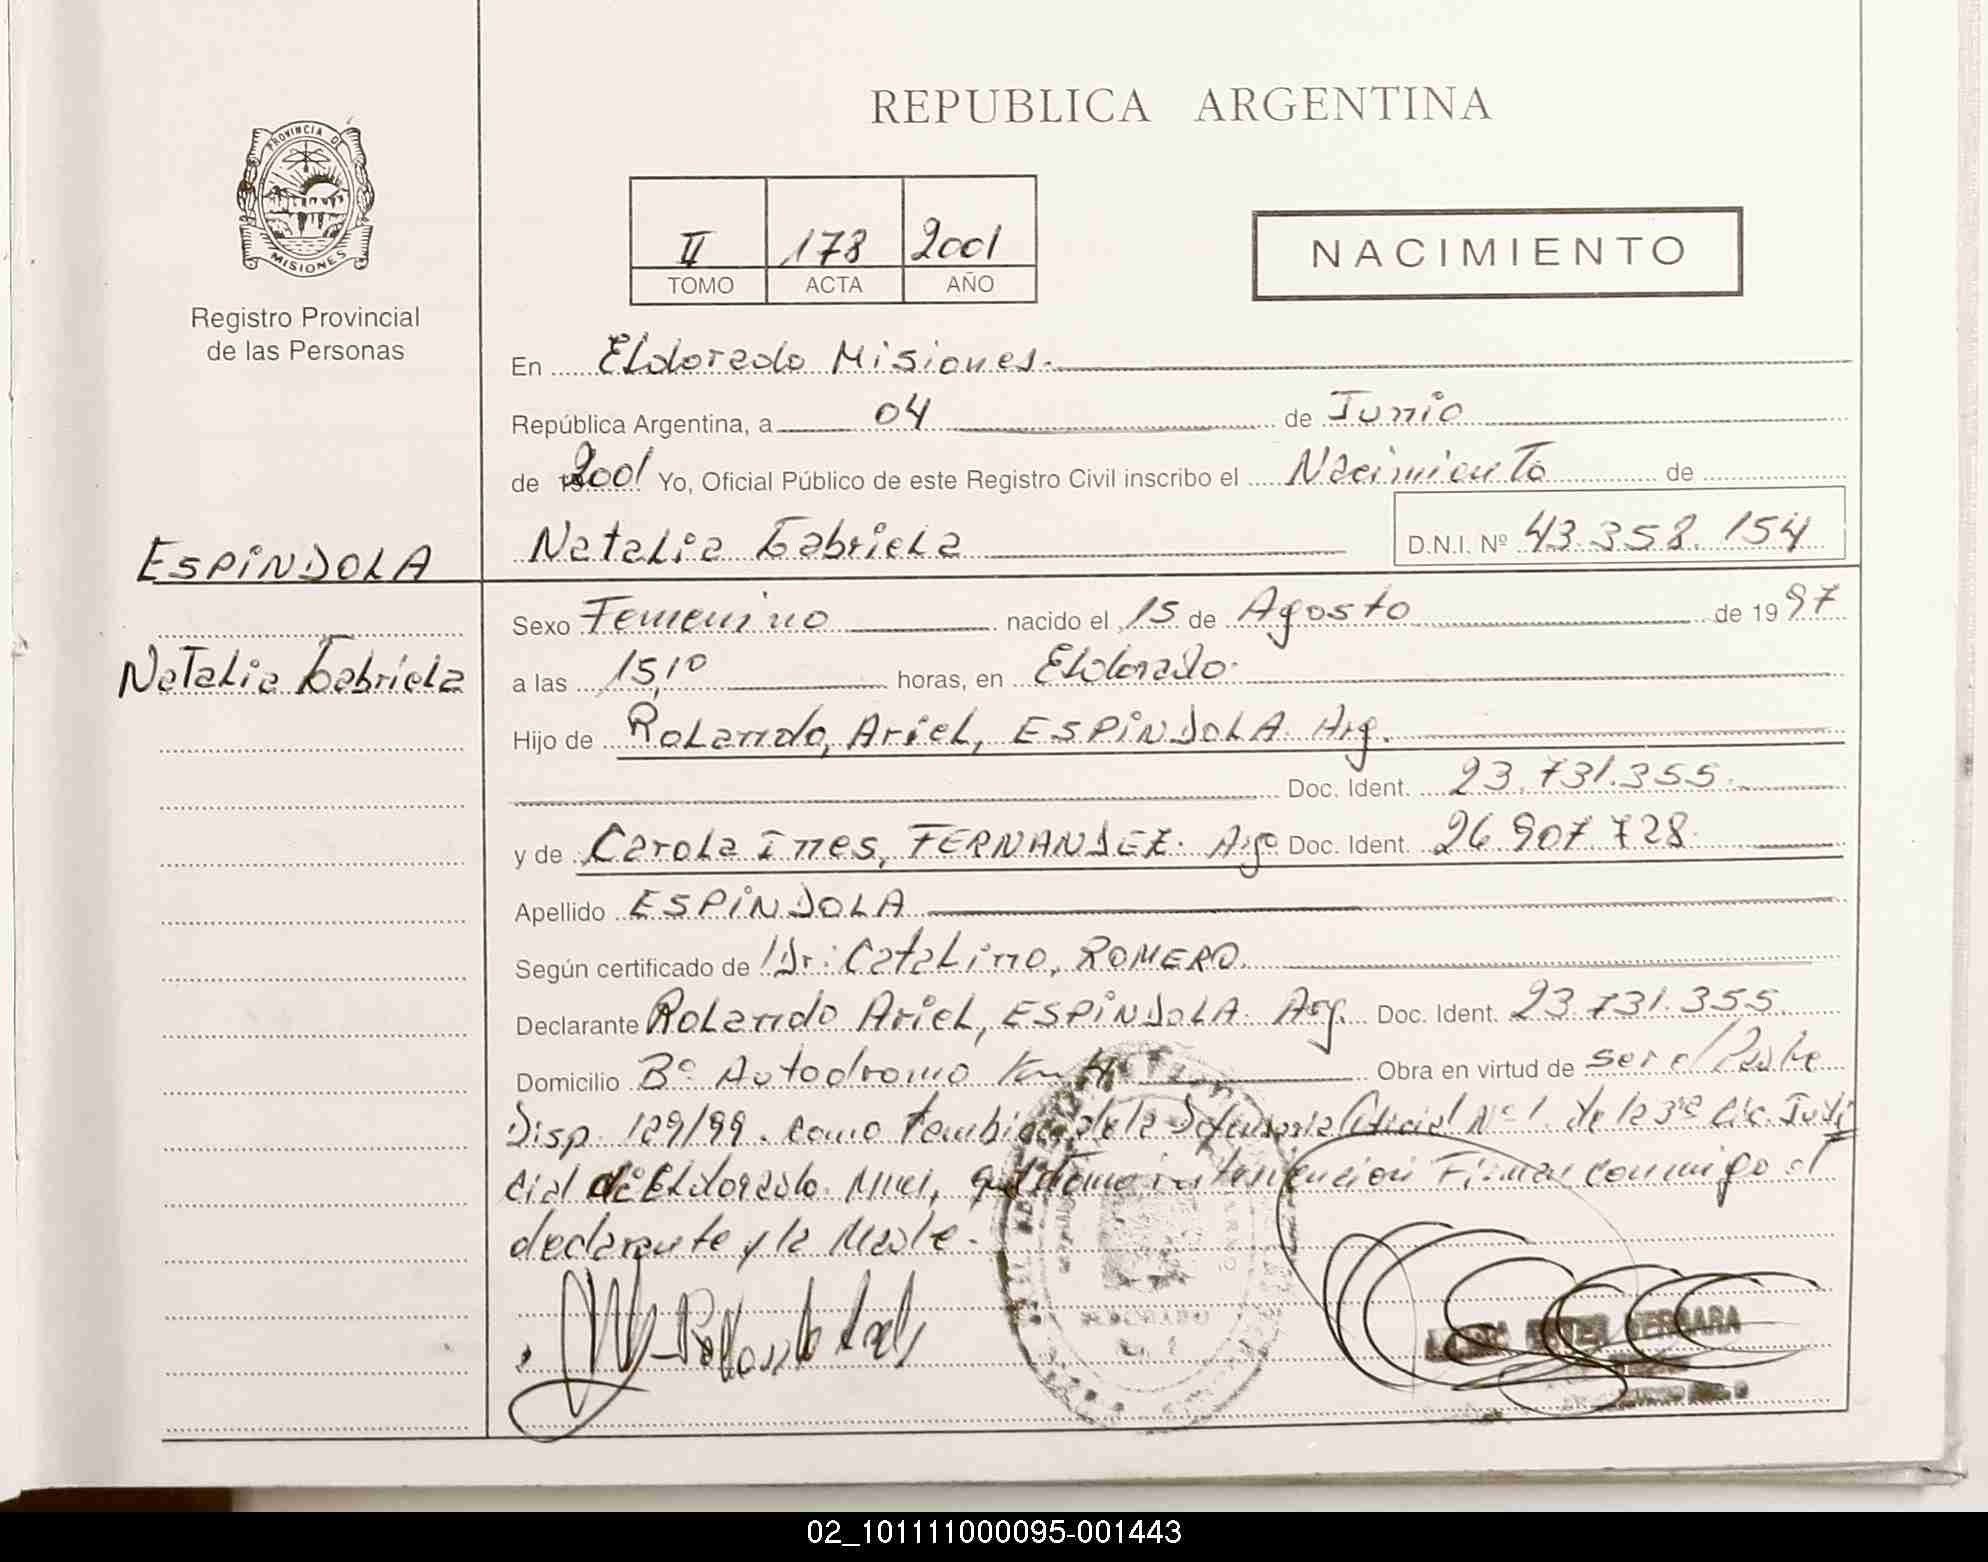 REPUBLICA ARGENTINA
PROVINCIA DE
MISIONES
Registro Provincial
de las Personas
II 178 2001
TOMO ACTA AÑO
NACIMIENTO
En Eldorado Misiones.
República Argentina, a 04 de Junio
de 2001 Yo, Oficial Público de este Registro Civil inscribo el Nacimiento de
Natalia Gabriela D.N.I. Nº 43.358.154
ESPINDOLA
Natalia Gabriela
Sexo Femenino nacido el 15 de Agosto de 1997
a las 15,10 horas, en Eldorado.
Hijo de Rolando, Ariel, ESPINDOLA. Arg.
Doc. Ident. 23.731.355.
y de Carola Ines, FERNANDEZ. Arg. Doc. Ident. 26.907.728.
Apellido ESPINDOLA
Según certificado de Dr: Catalino, ROMERO.
Declarante Rolando Ariel, ESPINDOLA. Arg. Doc. Ident. 23.731.355.
Domicilio Bº Autodromo Km 4 Obra en virtud de ser el Padre
Disp. 129/99. como tambien de la Defensoria Oficial Nº 1. de la 3ra Cic. Judi
cial de Eldorado. Mnes, que tomo intervencion Firman conmigo el
declarante y la Madre.
ELDORADO
02_101111000095-001443